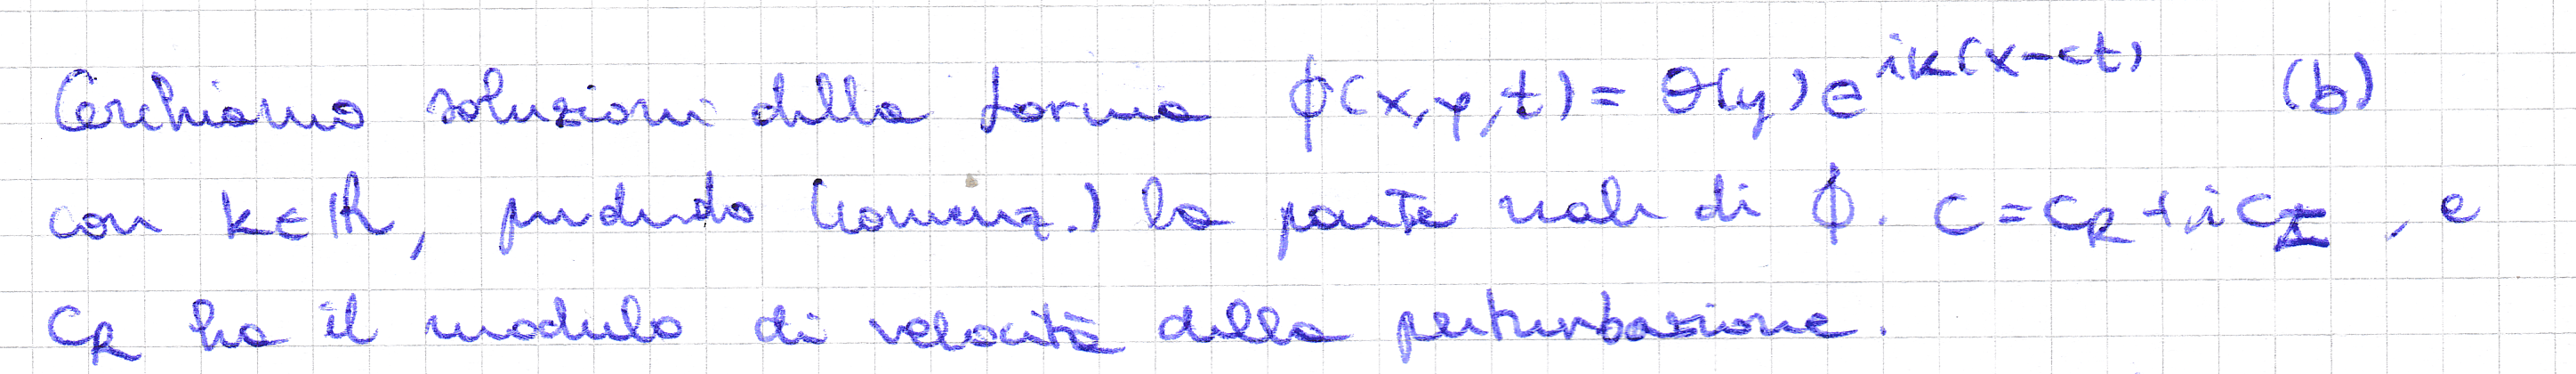 Cerchiamo soluzioni della forma ϕ(x,y,t) = θ(y) e^{ik(x-ct)} (b)
con k ∈ ℝ, prendendo (convenz.) la parte reale di ϕ. C = C_R + i C_I, e
C_R ha il modulo di velocità della perturbazione.